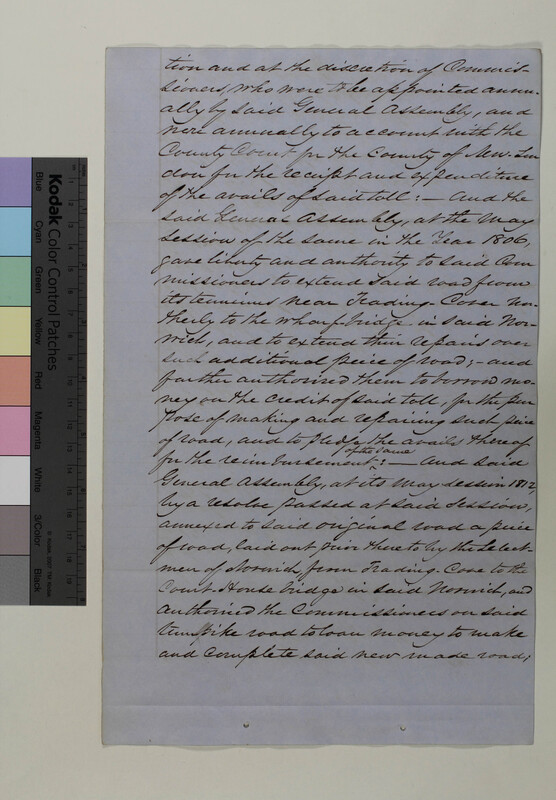 tion and at the discretion of Commis-
sioners, who were to be appointed annu-
ally by said General Assembly, and
were annually to account with the
County Court for the County of New-Lon
don for the receipt and expenditure
of the avails of said toll: — And the
said General Assembly, at the May
Session of the same in the Year 1806,
gave liberty and authority to said Com
missioners to extend said road from
its terminus near Trading-Cove nor-
therly to the wharf-bridge in said Nor-
wich, and to extend their repairs over
such additional piece of road; – and
further authorised them to borrow mo-
ney on the credit of said toll, for the pur
pose of making and repairing such piece
of road, and to pledge the avails thereof
of the same
for the reimbursement : — And said
General Assembly, at its May session 1812,
by a resolve passed at said Session,
annexed to said original road a piece
of road, laid out prior thereto by the Select-
men of Norwich, from Trading-Cove to the
Court-House bridge in said Norwich, and
authorised the Commissioners on said
turnpike road to loan money to make
and complete said new made road;
Kodak Color Control Patches
Blue
Cyan
Green
Yellow
Red
Magenta
White
3/Color
Black